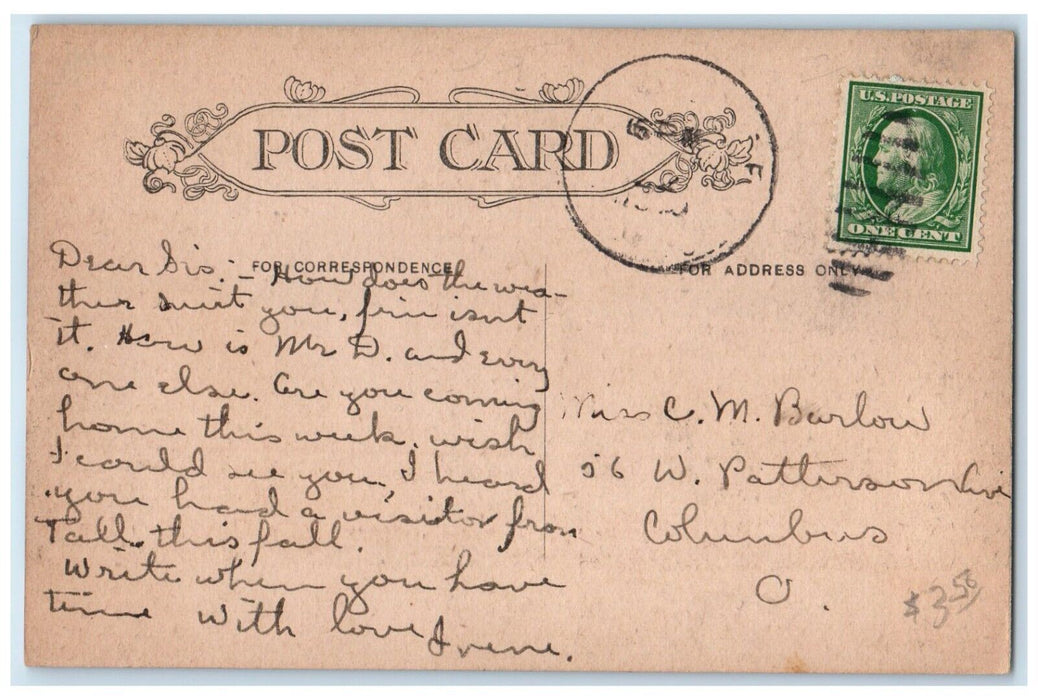 POST CARD
U.S. POSTAGE
ONE CENT
FOR CORRESPONDENCE
FOR ADDRESS ONLY
Dear Sis:- How does the wea-
ther suit you, fine isnt
it. How is Mr D. and every
one else. Are you coming
home this week. wish
I could see you, I heard
you had a visitor from
Tall. this fall.
Write when you have
time with love Irene.
Miss C. M. Barlow
56 W. Patterson Ave
Columbus
O.
$3.50